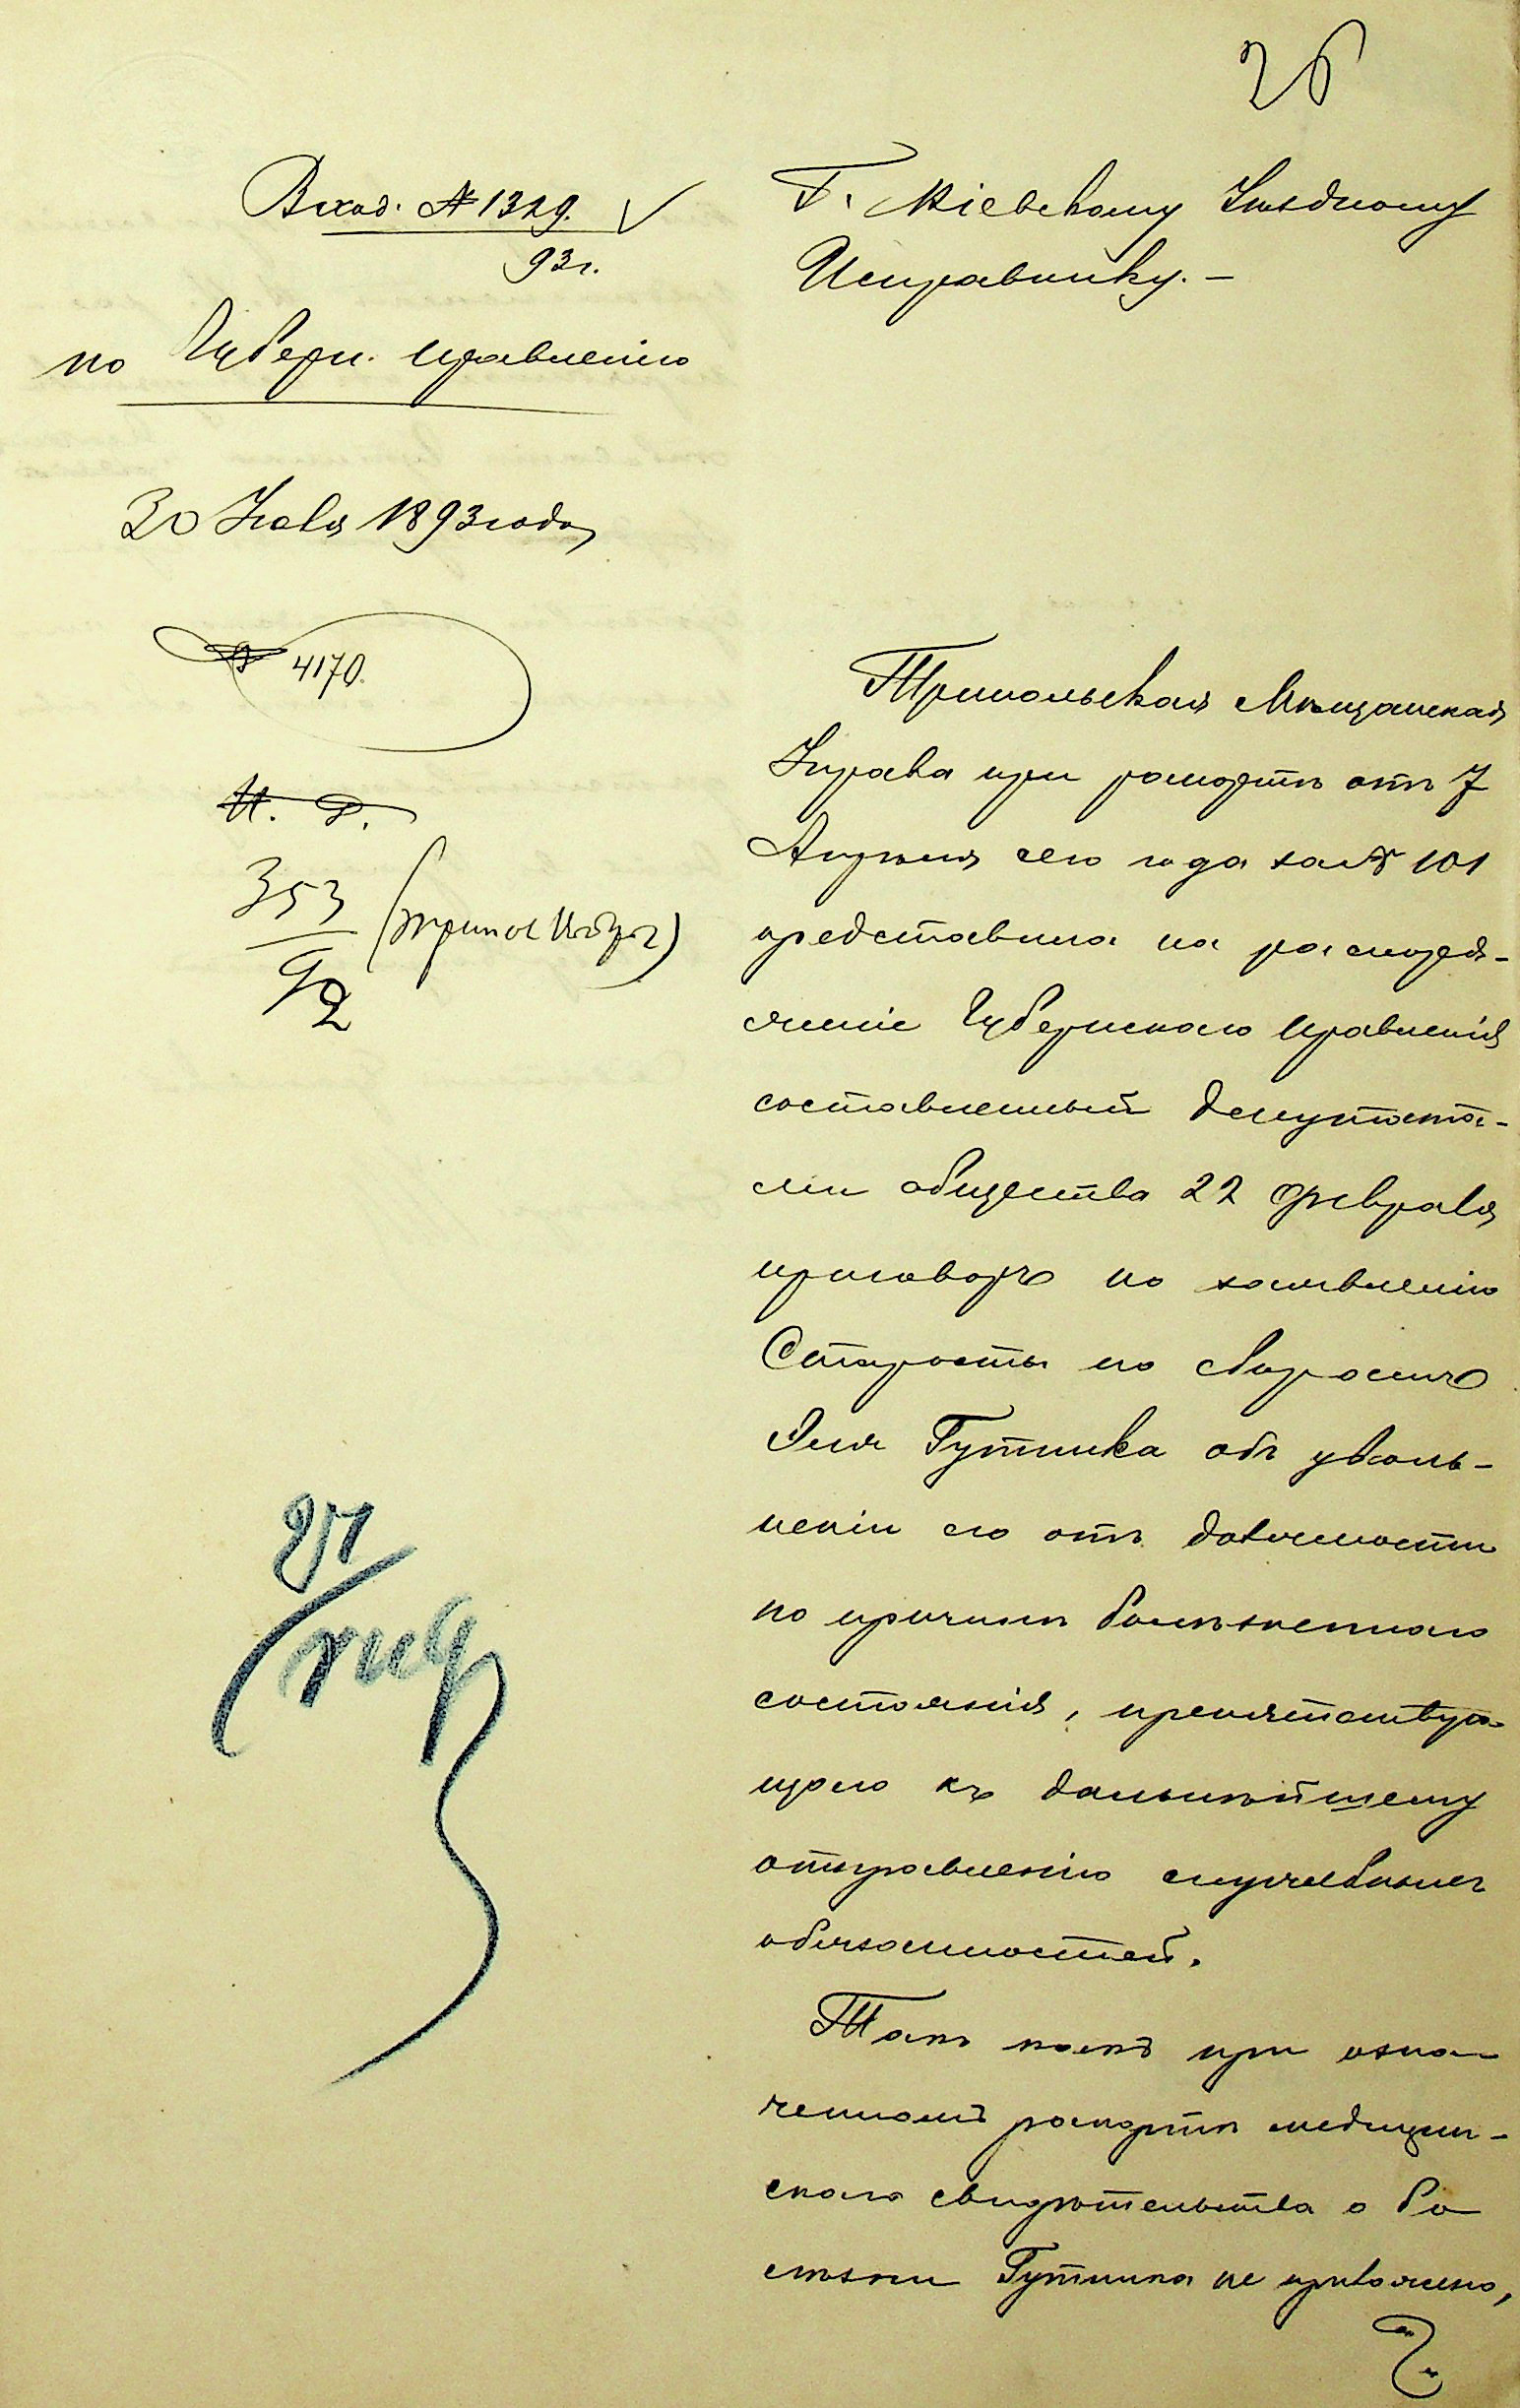 26
Вход. № 1329.
93 г.
по Губерн. Правленію
30 Іюля 1893 года
№ 4170.
И. Д.
353
92
Г. Кіевскому Уѣздному
Исправнику. –
Трипольская Мѣщанская
Управа при рапортѣ отъ 7
Апрѣля сего года за № 101
представила на распоря-
женіе Губернскаго Правленія
составленный депутата-
ми общества 22 февраля
приговоръ по заявленію
Старосты по сборамъ
Эля Гутника объ уволь-
неніи его отъ должности
по причинѣ болѣзненнаго
состоянія, препятствую-
щаго къ дальнѣйшему
отправленію служебныхъ
обязанностей.
Такъ какъ при озна-
ченномъ рапортѣ медицин-
скаго свидѣтельства о бо
лѣзни Гутника не приложено,